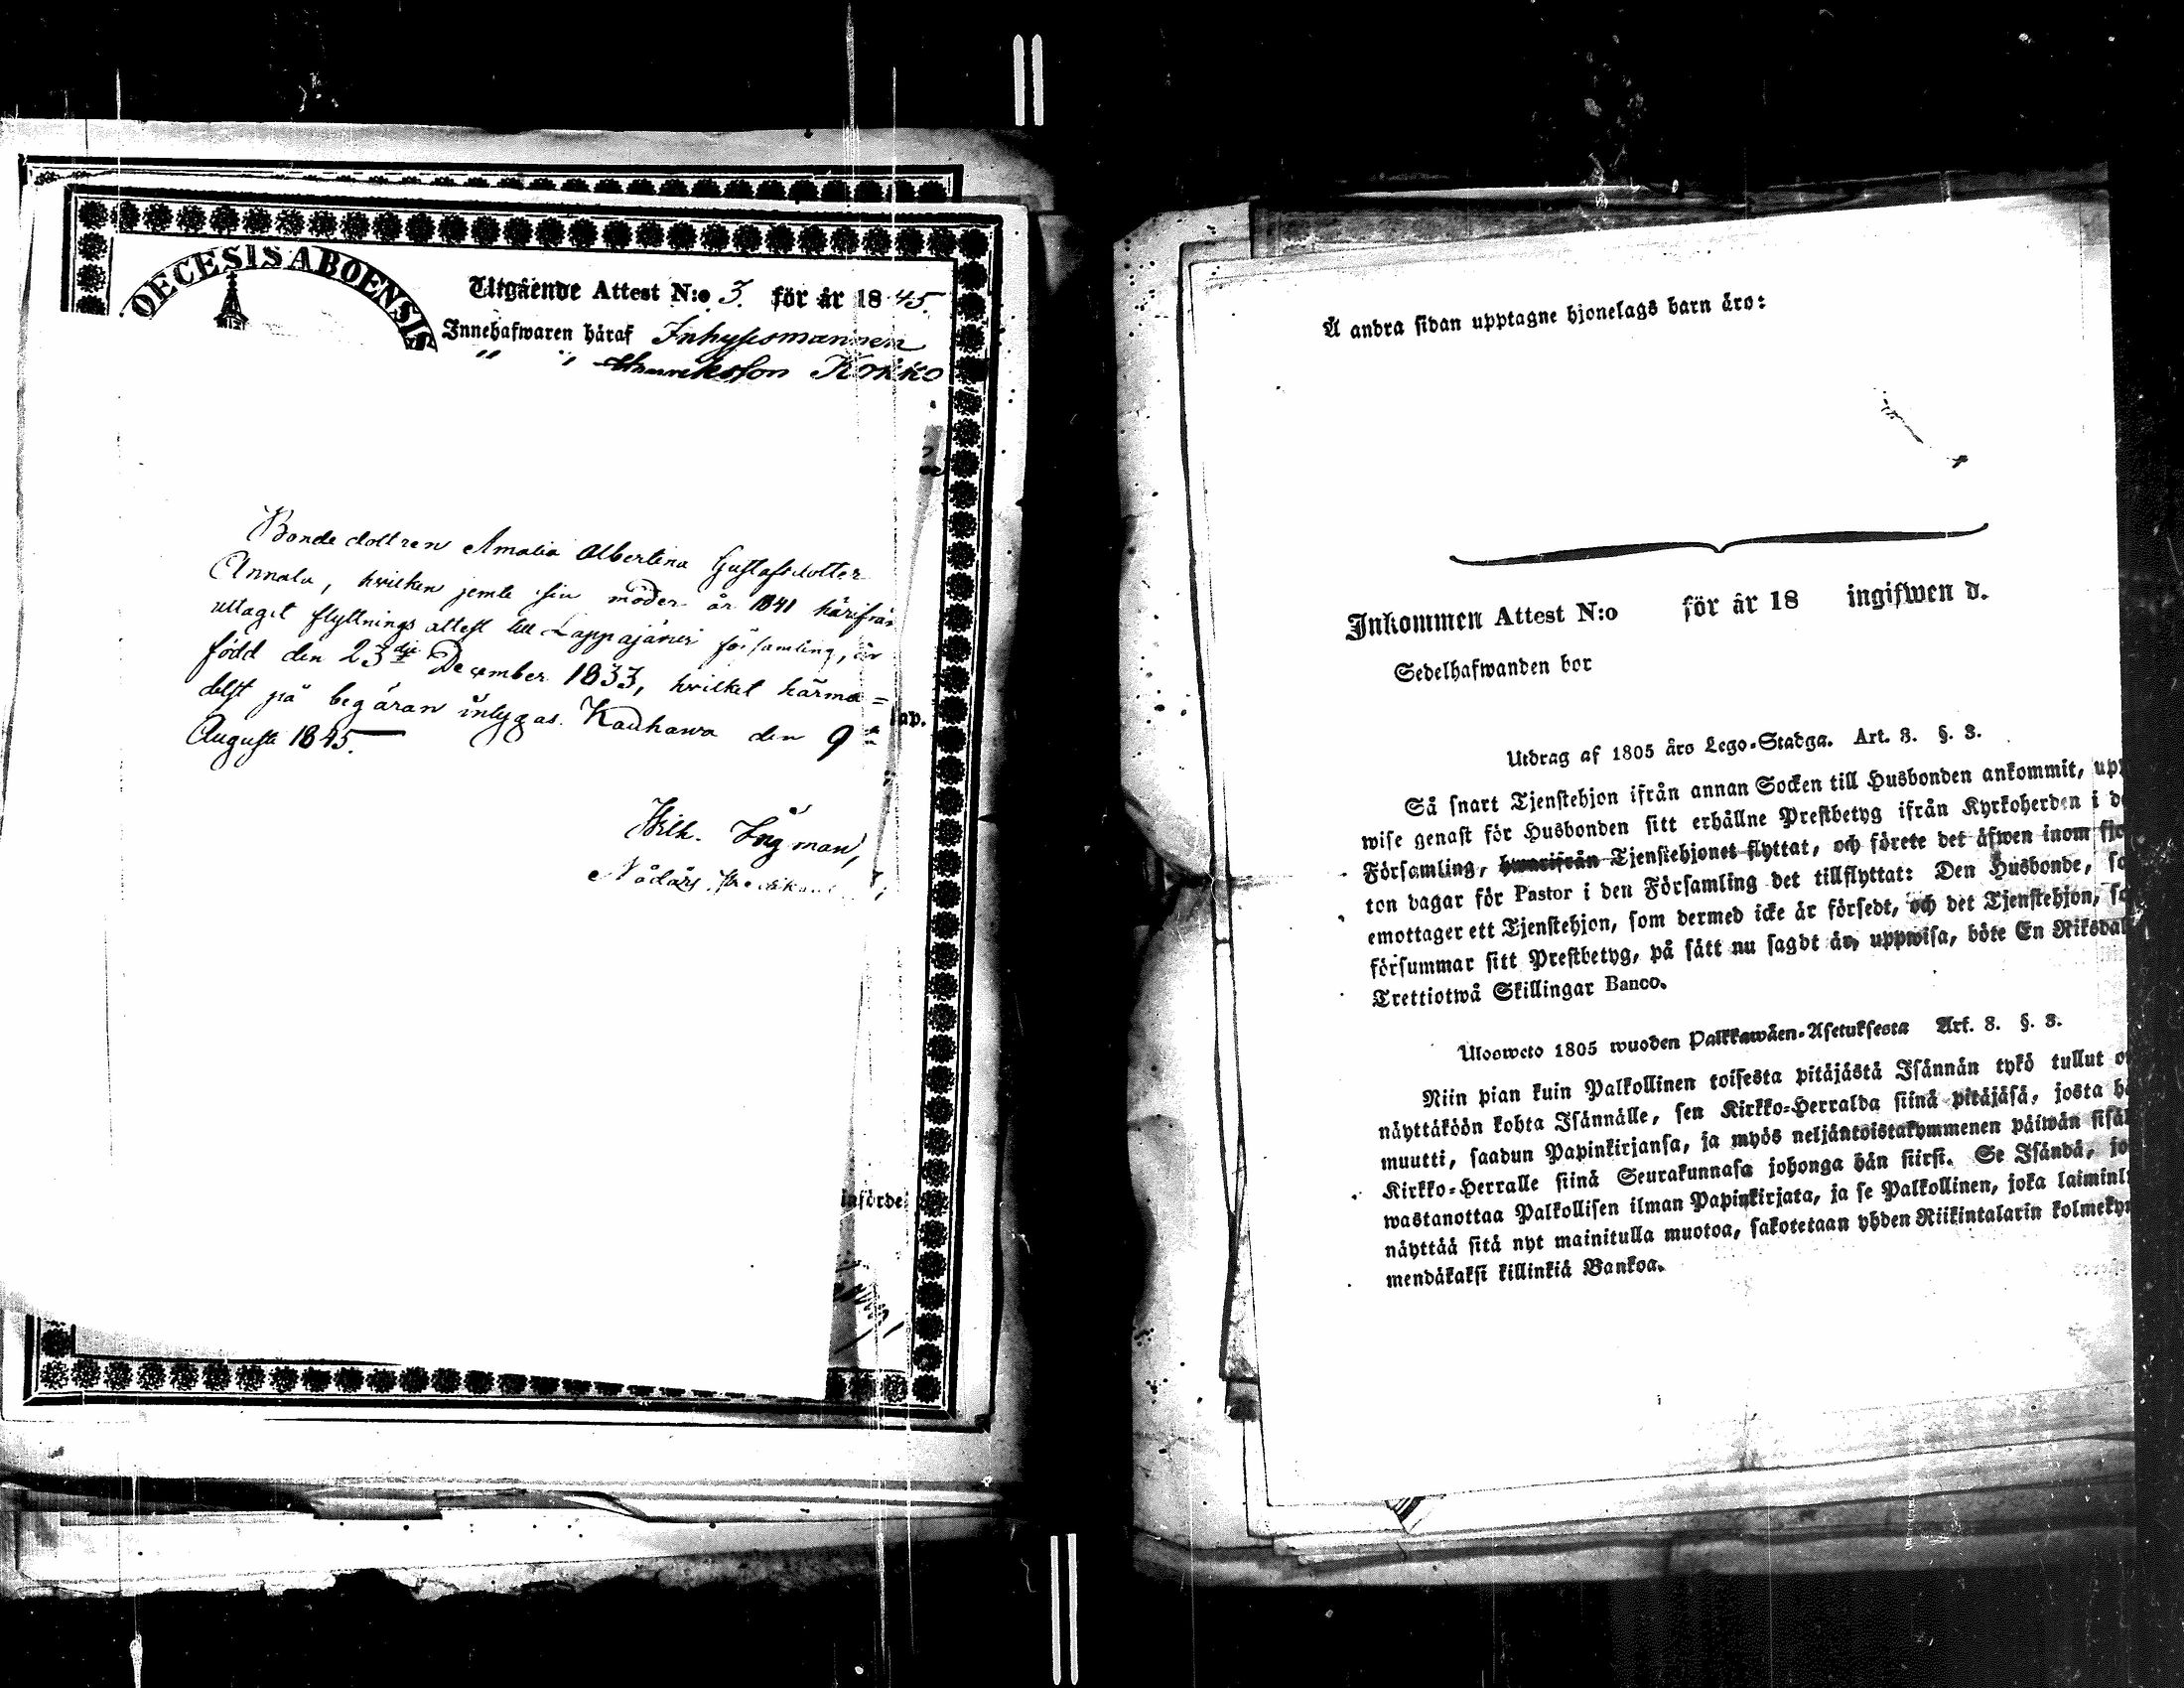 OECESIS ABOENSIS
Utgående Attest N:o 3. för år 1845.
Innehafwaren häraf Inhysesmannen
" " Henriksson Kokko
Bondedottren Amalia Albertina Gustafsdotter
Annala, hvilken jemte sin moder år 1841 härifrån
uttagit flyttnings attest till Lappajärvi församling, är
född den 23dje December 1833, hvilket härme=
delst på begäran intygas. Kauhawa den 9
Augusti 1845.
Wilh. Ingman,
Nådårs Predikant
införde
Å andra sidan upptagne hjonelags barn äro:
Inkommen Attest N:o för år 18 ingifwen d.
Sedelhafwanden bor
Utdrag af 1805 års Lego-Stadga. Art. 3. §. 3.
Så snart Tjenstehjon ifrån annan Socken till Husbonden ankommit, upp
wise genast för Husbonden sitt erhållne Prestbetyg ifrån Kyrkoherden i d
Församling, hwarifrån Tjenstehjonet flyttat, och förete det äfwen inom fjo
ton dagar för Pastor i den Församling det tillflyttat: Den Husbonde, so
emottager ett Tjenstehjon, som dermed icke är försedt, och det Tjenstehjon, so
försummar sitt Prestbetyg, på sätt nu sagdt är, uppwisa, böte En Riksdal
Trettiotwå Skillingar Banco.
Ulosweto 1805 wuoden Palkkawäen-Asetuksesta Art. 3. §. 3.
Niin pian kuin Palkollinen toisesta pitäjästä Isännän tykö tullut o
näyttäköön kohta Isännälle, sen Kirkko-Herralda siinä pitäjäsä, josta hä
muutti, saadun Papinkirjansa, ja myös neljäntoistakymmenen päiwän sisäl
Kirkko-Herralle siinä Seurakunnasa johonga hän siirsi. Se Isändä, jo
wastanottaa Palkollisen ilman Papinkirjata, ja se Palkollinen, joka laiminl
näyttää sitä nyt mainitulla muotoa, sakotetaan yhden Riikintalarin kolmeky
mendäkaksi killinkiä Bankoa.